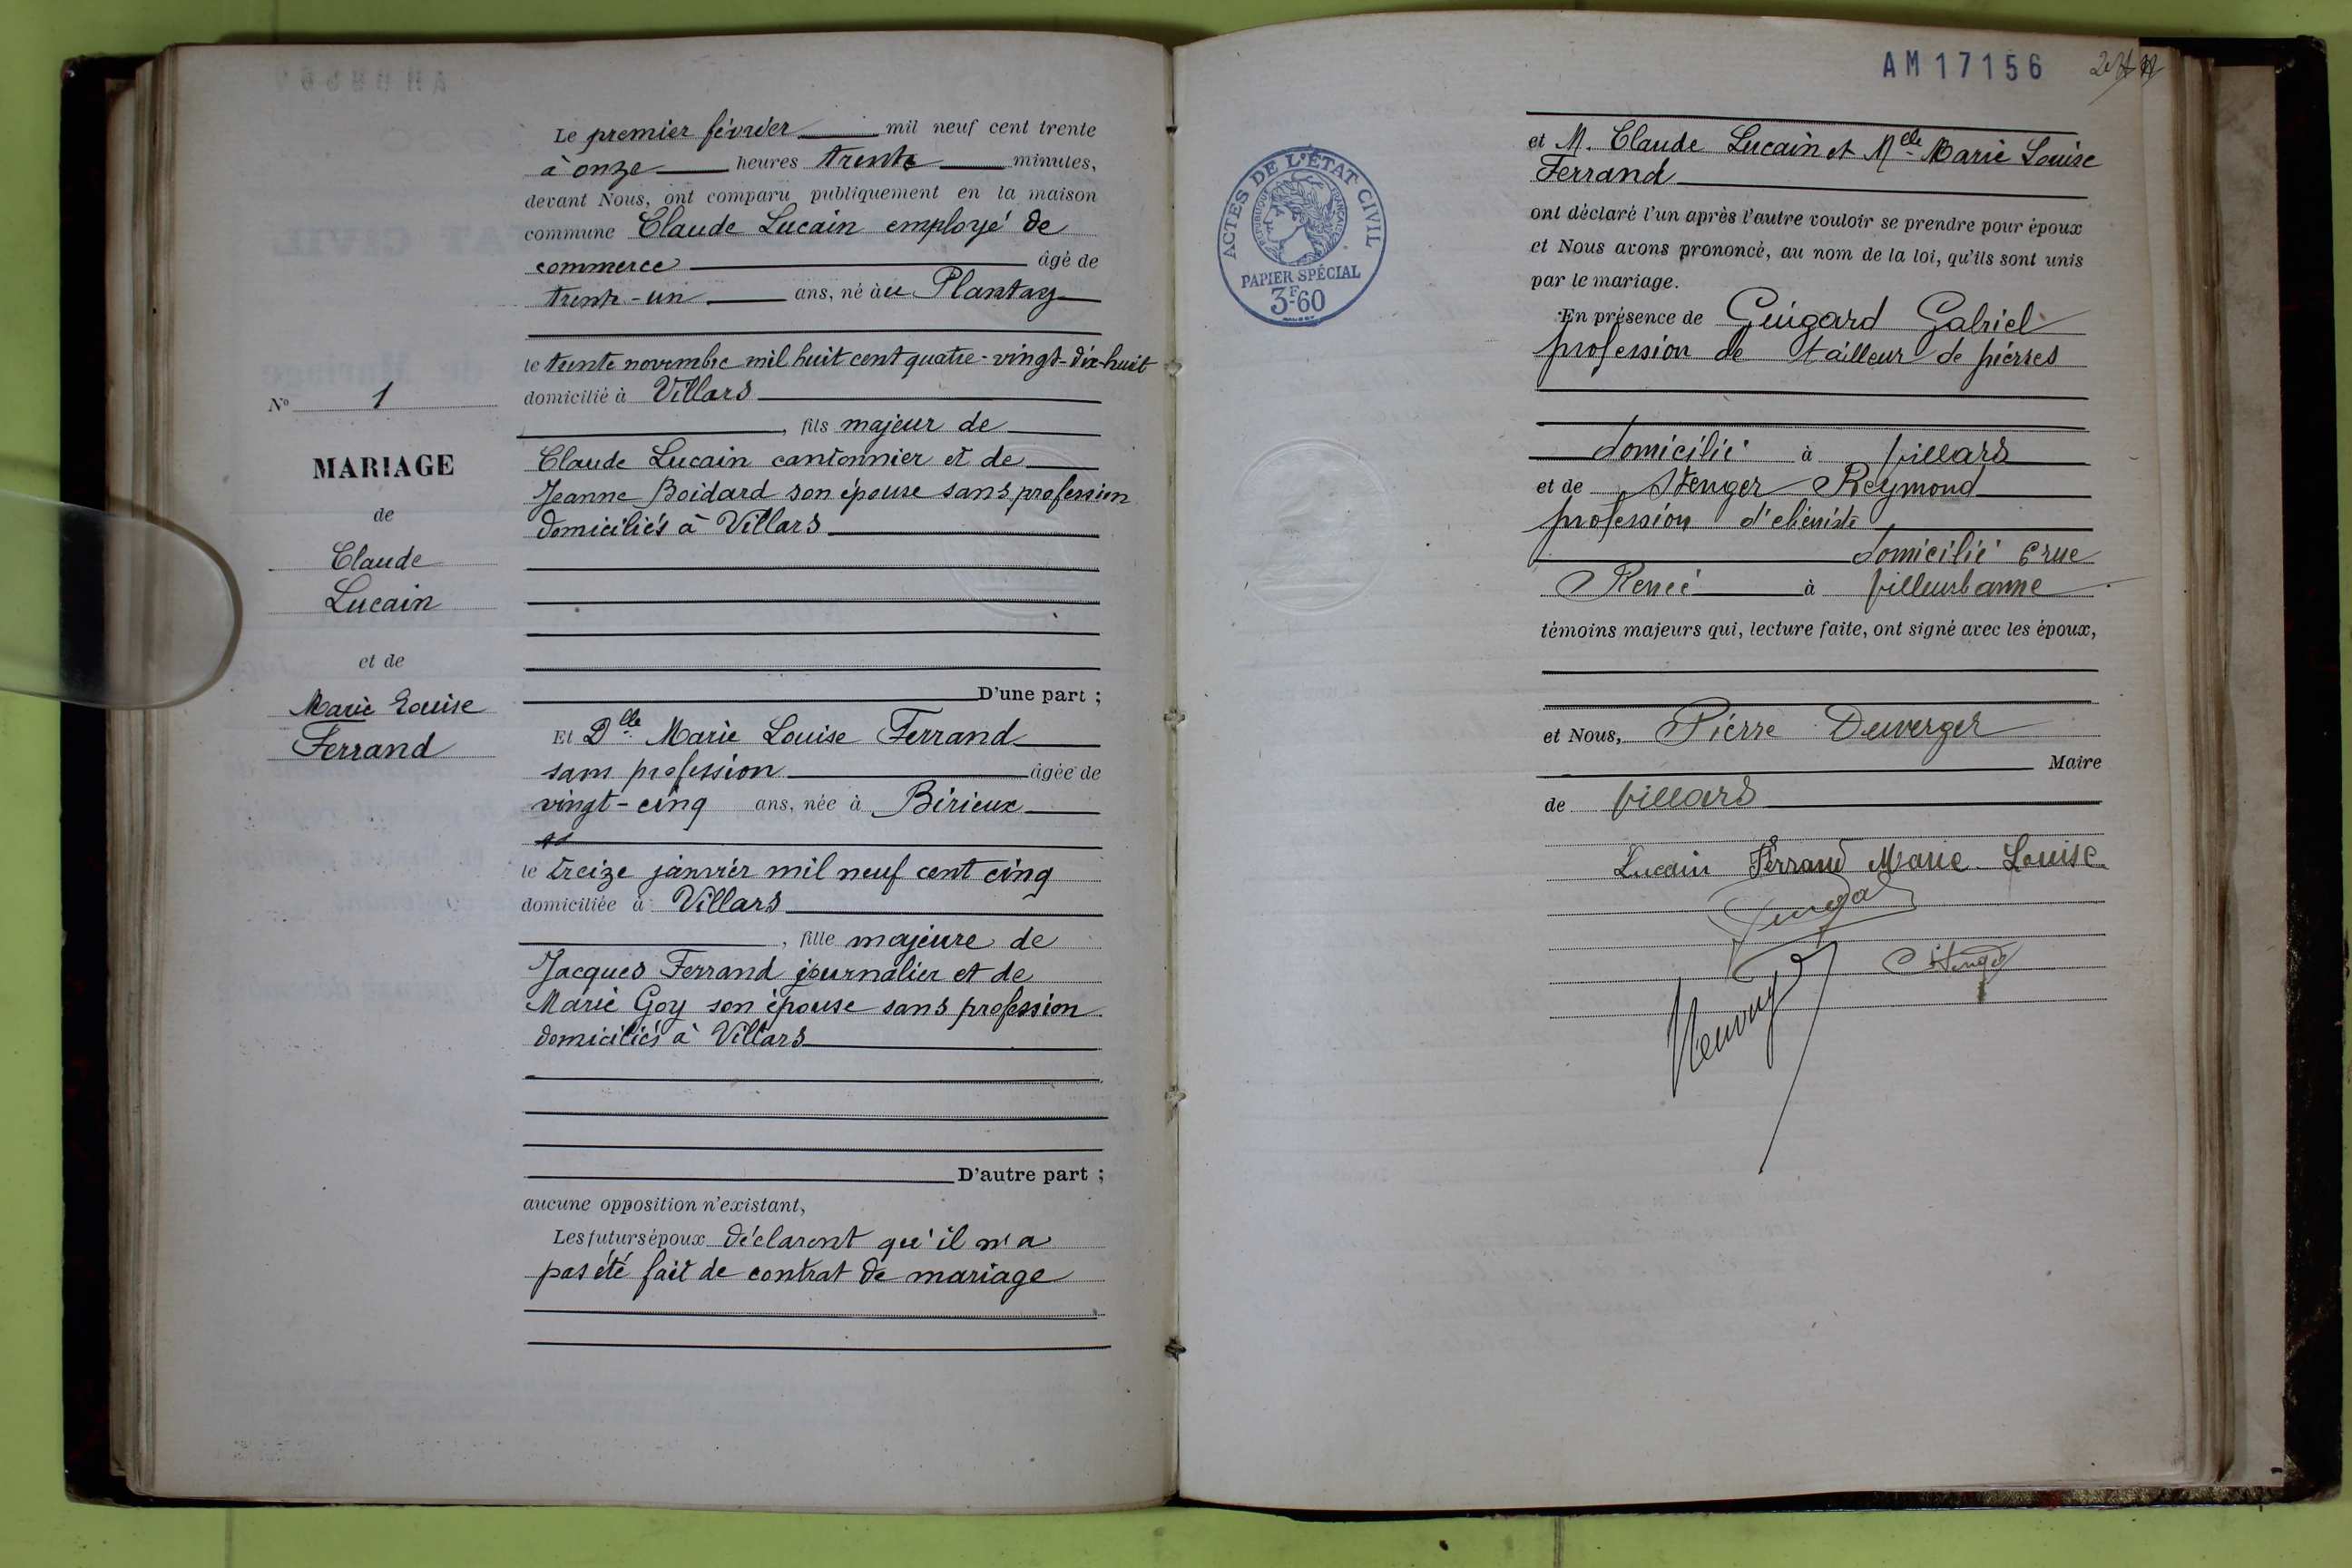 Le premier février mil neuf cent trente
à onze heures trente minutes,
devant Nous, ont comparu publiquement en la maison
commune Claude Lucain employé de
commerce âgé de
trente-un ans, né àu Plantay
le trente novembre mil huit cent quatre-vingt-dix-huit
domicilié à Villars
, fils majeur de
Claude Lucain cantonnier et de
Jeanne Boidard son épouse sans profession
domiciliés à Villars
D'une part ;
Et Dlle Marie Louise Ferrand
sans profession âgée de
vingt-cinq ans, née à Birieux
le treize janvier mil neuf cent cinq
domiciliée à Villars
, fille majeure de
Jacques Ferrand journalier et de
Marie Goy son épouse sans profession
domiciliés à Villars
D'autre part ;
aucune opposition n'existant,
Les futurs époux déclarent qu'il n'a
pas été fait de contrat de mariage
No 1
MARIAGE
de
Claude
Lucain
et de
Marie Louise
Ferrand
AM17156
ACTES DE L'ÉTAT CIVIL
RÉPUBLIQUE FRANÇAISE
PAPIER SPÉCIAL
3F-60
et M. Claude Lucain et Melle Marie Louise
Ferrand
ont déclaré l'un après l'autre vouloir se prendre pour époux
et Nous avons prononcé, au nom de la loi, qu'ils sont unis
par le mariage.
En présence de Guigard Gabriel
profession de tailleur de pierres
domicilié à Villars
et de Stenger Reymond
profession d'ébéniste
domicilié 6 rue
Renée à Villeurbanne
témoins majeurs qui, lecture faite, ont signé avec les époux,
et Nous, Pierre Duverger
Maire
de Villars
Lucain Ferrand Marie-Louise
Stenger